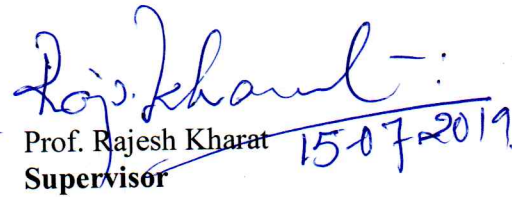 Raj. Kharat
Prof. Rajesh Kharat
15-07-2019
Supervisor